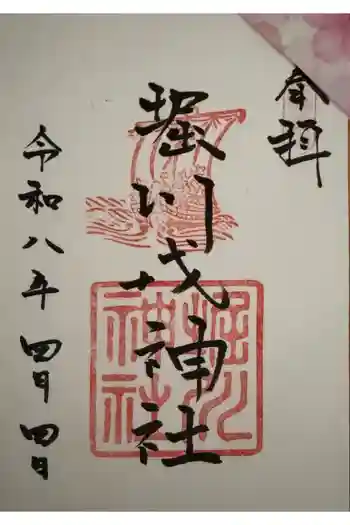 奉拝
堀川戎神社
堀川神社
令和八年四月四日